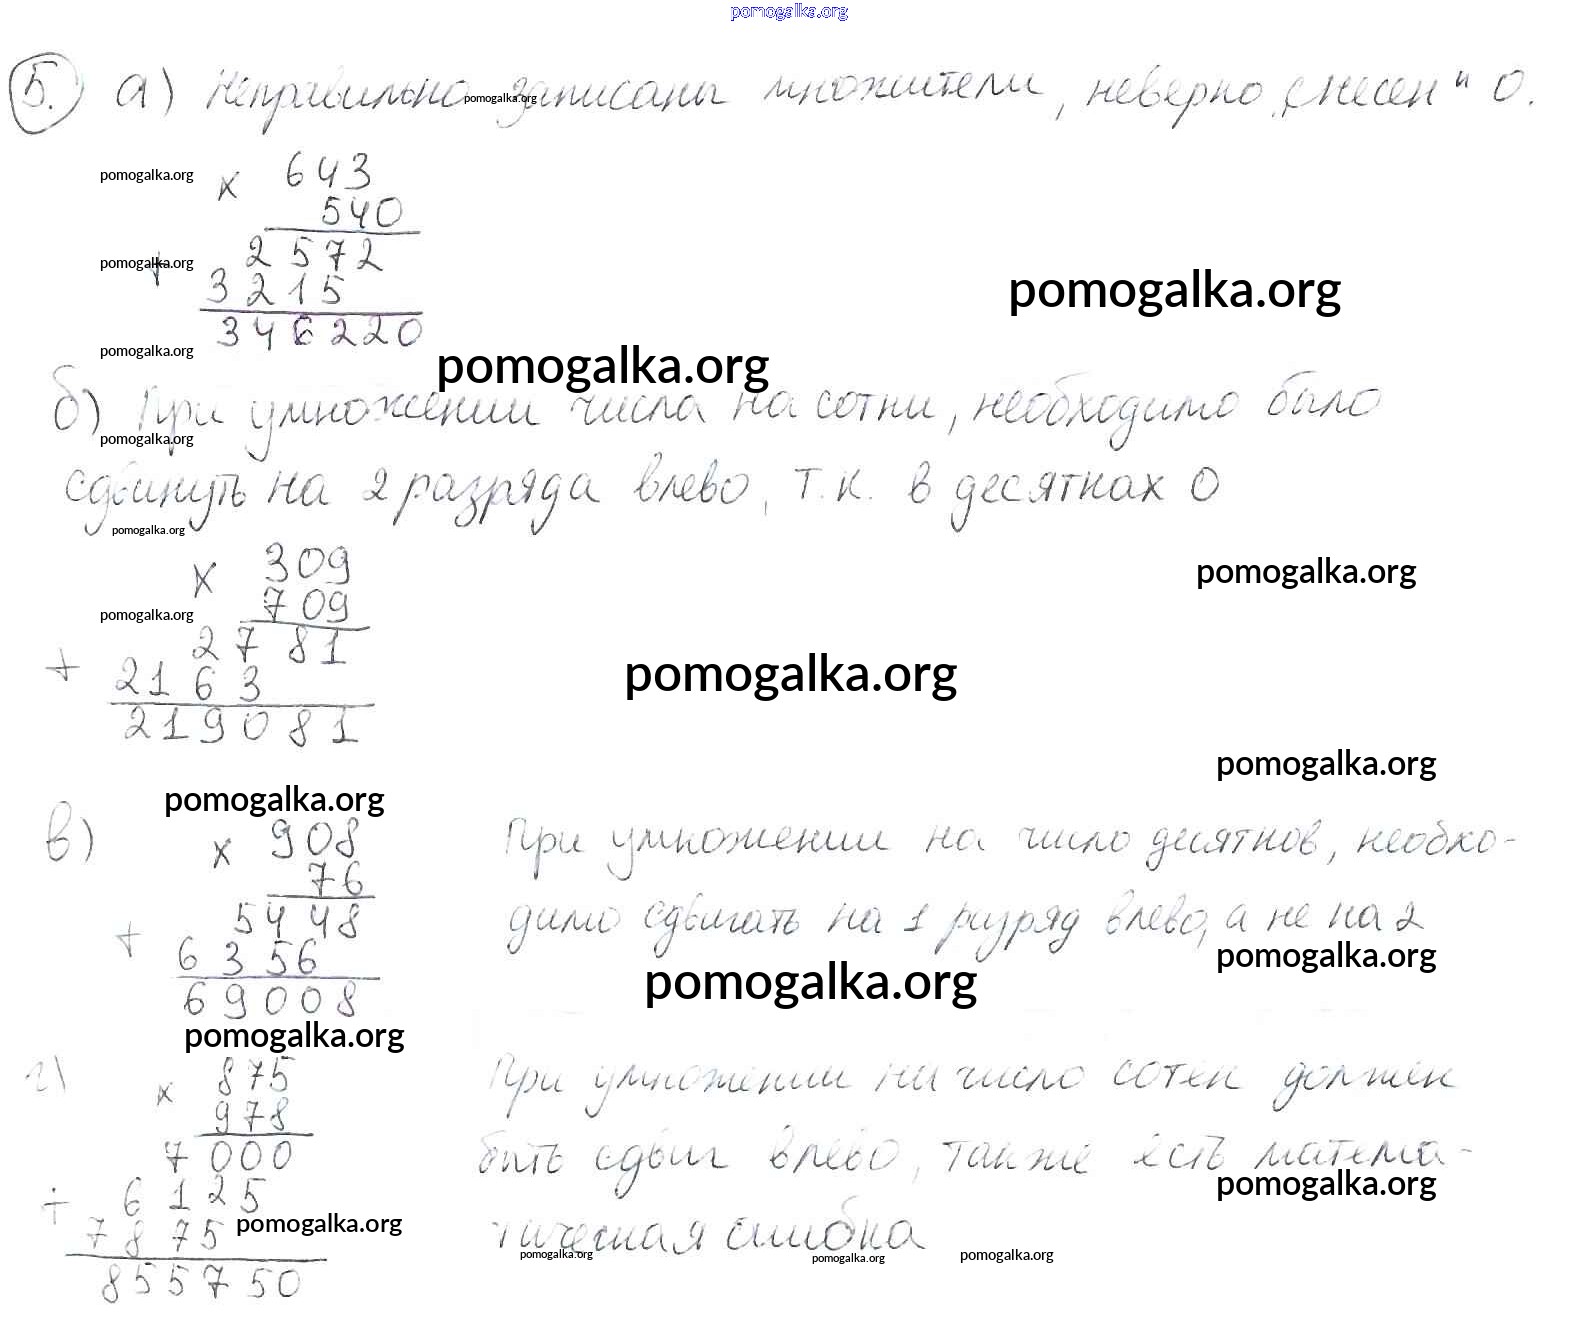 pomogalka.org
5. а) Неправильно записаны множители, неверно „снесен" 0.
pomogalka.org
pomogalka.org
× 643
540
2572
pomogalka.org
+ 3215
346220
pomogalka.org
pomogalka.org
pomogalka.org
б) При умножении числа на сотни, необходимо было
pomogalka.org
сдвинуть на 2 разряда влево, т.к. в десятках 0
pomogalka.org
× 309
pomogalka.org
709
pomogalka.org
2781
+ 2163
219081
pomogalka.org
pomogalka.org
pomogalka.org
в) × 908
76
5448
+ 6356
69008
При умножении на число десятков, необхо-
димо сдвигать на 1 разряд влево, а не на 2
pomogalka.org
pomogalka.org
pomogalka.org
г) × 875
978
7000
+ 6125
7875
855750
При умножении на число сотен должен
быть сдвиг влево, также есть матема-
pomogalka.org
тическая ошибка
pomogalka.org
pomogalka.org
pomogalka.org
pomogalka.org